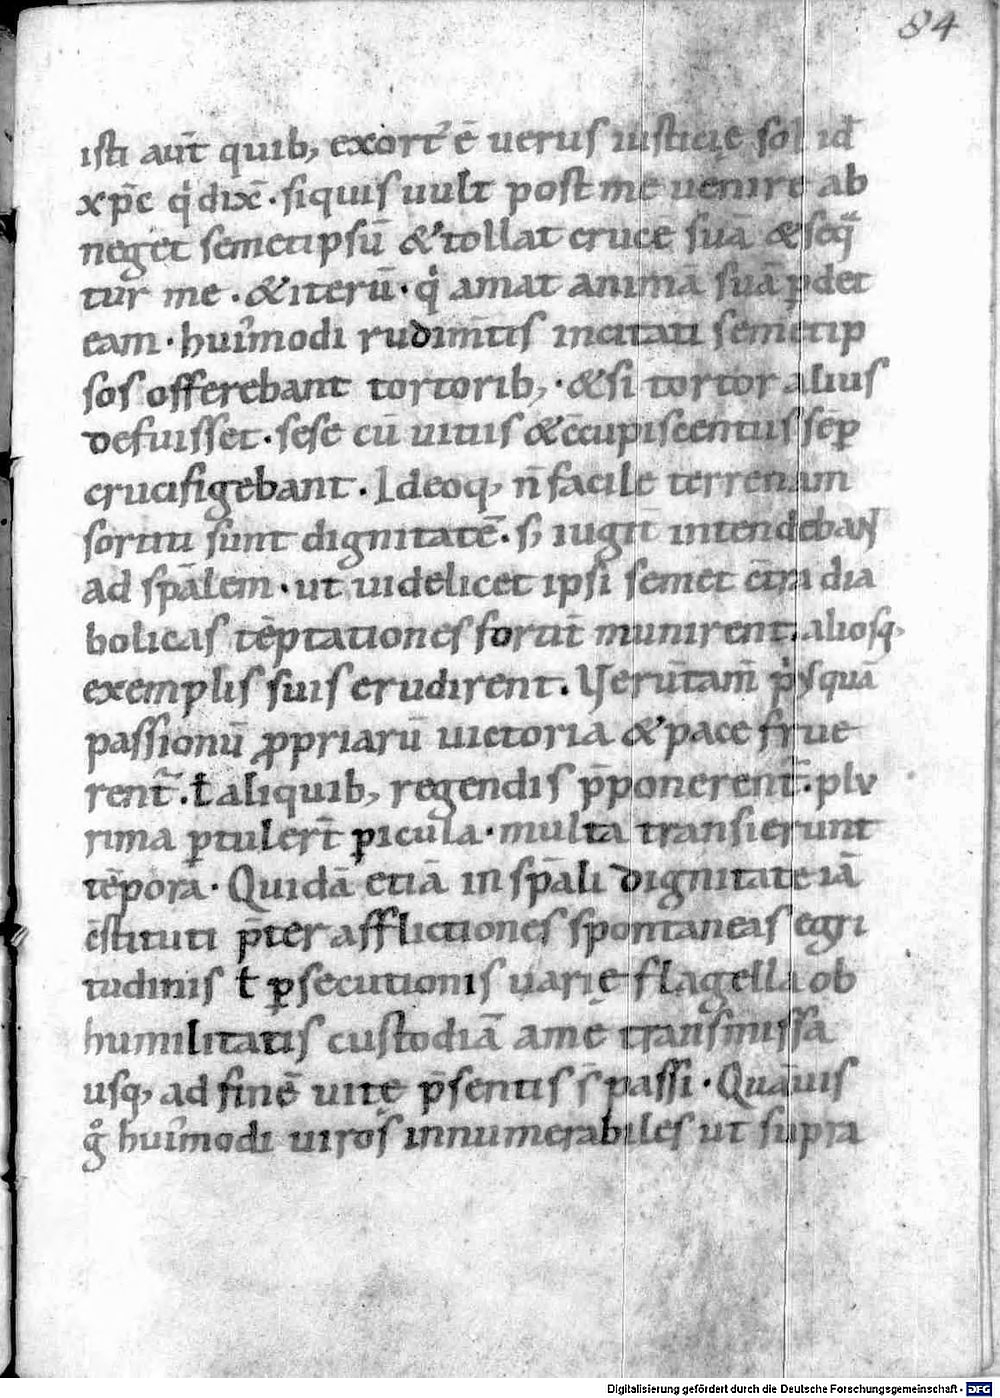 84
isti aut̄ quib; exort᾿ ē uerus iusticię sol id
xp̄c q̇ dix̄. siquis uult post me uenire ab
neget semetipsū & tollat crucē suā & seq̄
tur me. & iterū. q̇ amat animā suā ꝑdet
eam. hui᾿modi rudim̄tis incitati semetip
sos offerebant tortorib;. & si tortor alius
defuisset. sese cū uitiis & c̄cupiscentiis sēꝑ
crucifigebant. Ideoq; n̄ facile terrenam
sortiti sunt dignitatē. s; iugit̄ intendebant
ad sp̄alem. ut uidelicet ipsi semet c̄tra dia
bolicas tēptationes fortit̄ munirent. aliosq;
exemplis suis erudirent. Uerūtam̄ p᾿squā
passionū ꝓpriarū uictoria & pace frue
rent᷑. ł aliquib; regendis p̄ponerent᷑. plu
rima ꝑtuler̄t ꝑicula. multa transierunt
tēpora. Quidā etiā in sp̄ali dignitate iā
c̄stituti p̄ter afflictiones spontaneas egri
tudinis ł ꝑsecutionis uarię flagella ob
humilitatis custodiā a me transmissa
usq; ad finē uitę p̄sentis s̄ passi. Quāuis
gͦ hui᾿modi uiros innumerabiles ut supra
Digitalisierung gefördert durch die Deutsche Forschungsgemeinschaft - DFG